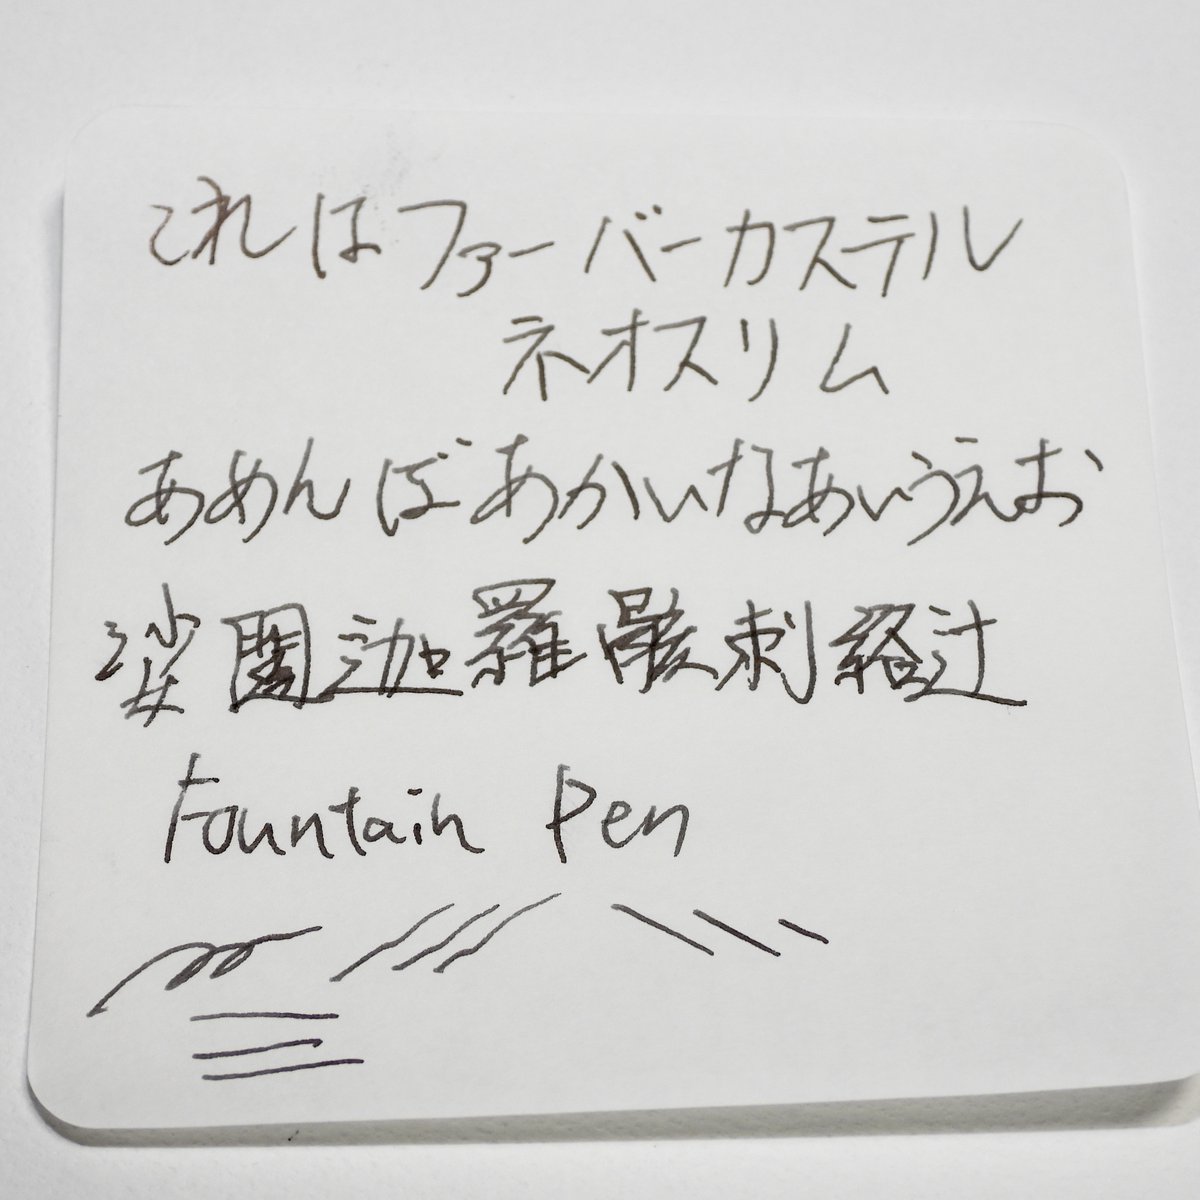 これはファーバーカステル
ネオスリム
あめんぼあかいなあいうえお
娑 迦羅骸刺経辻
Fountain Pen